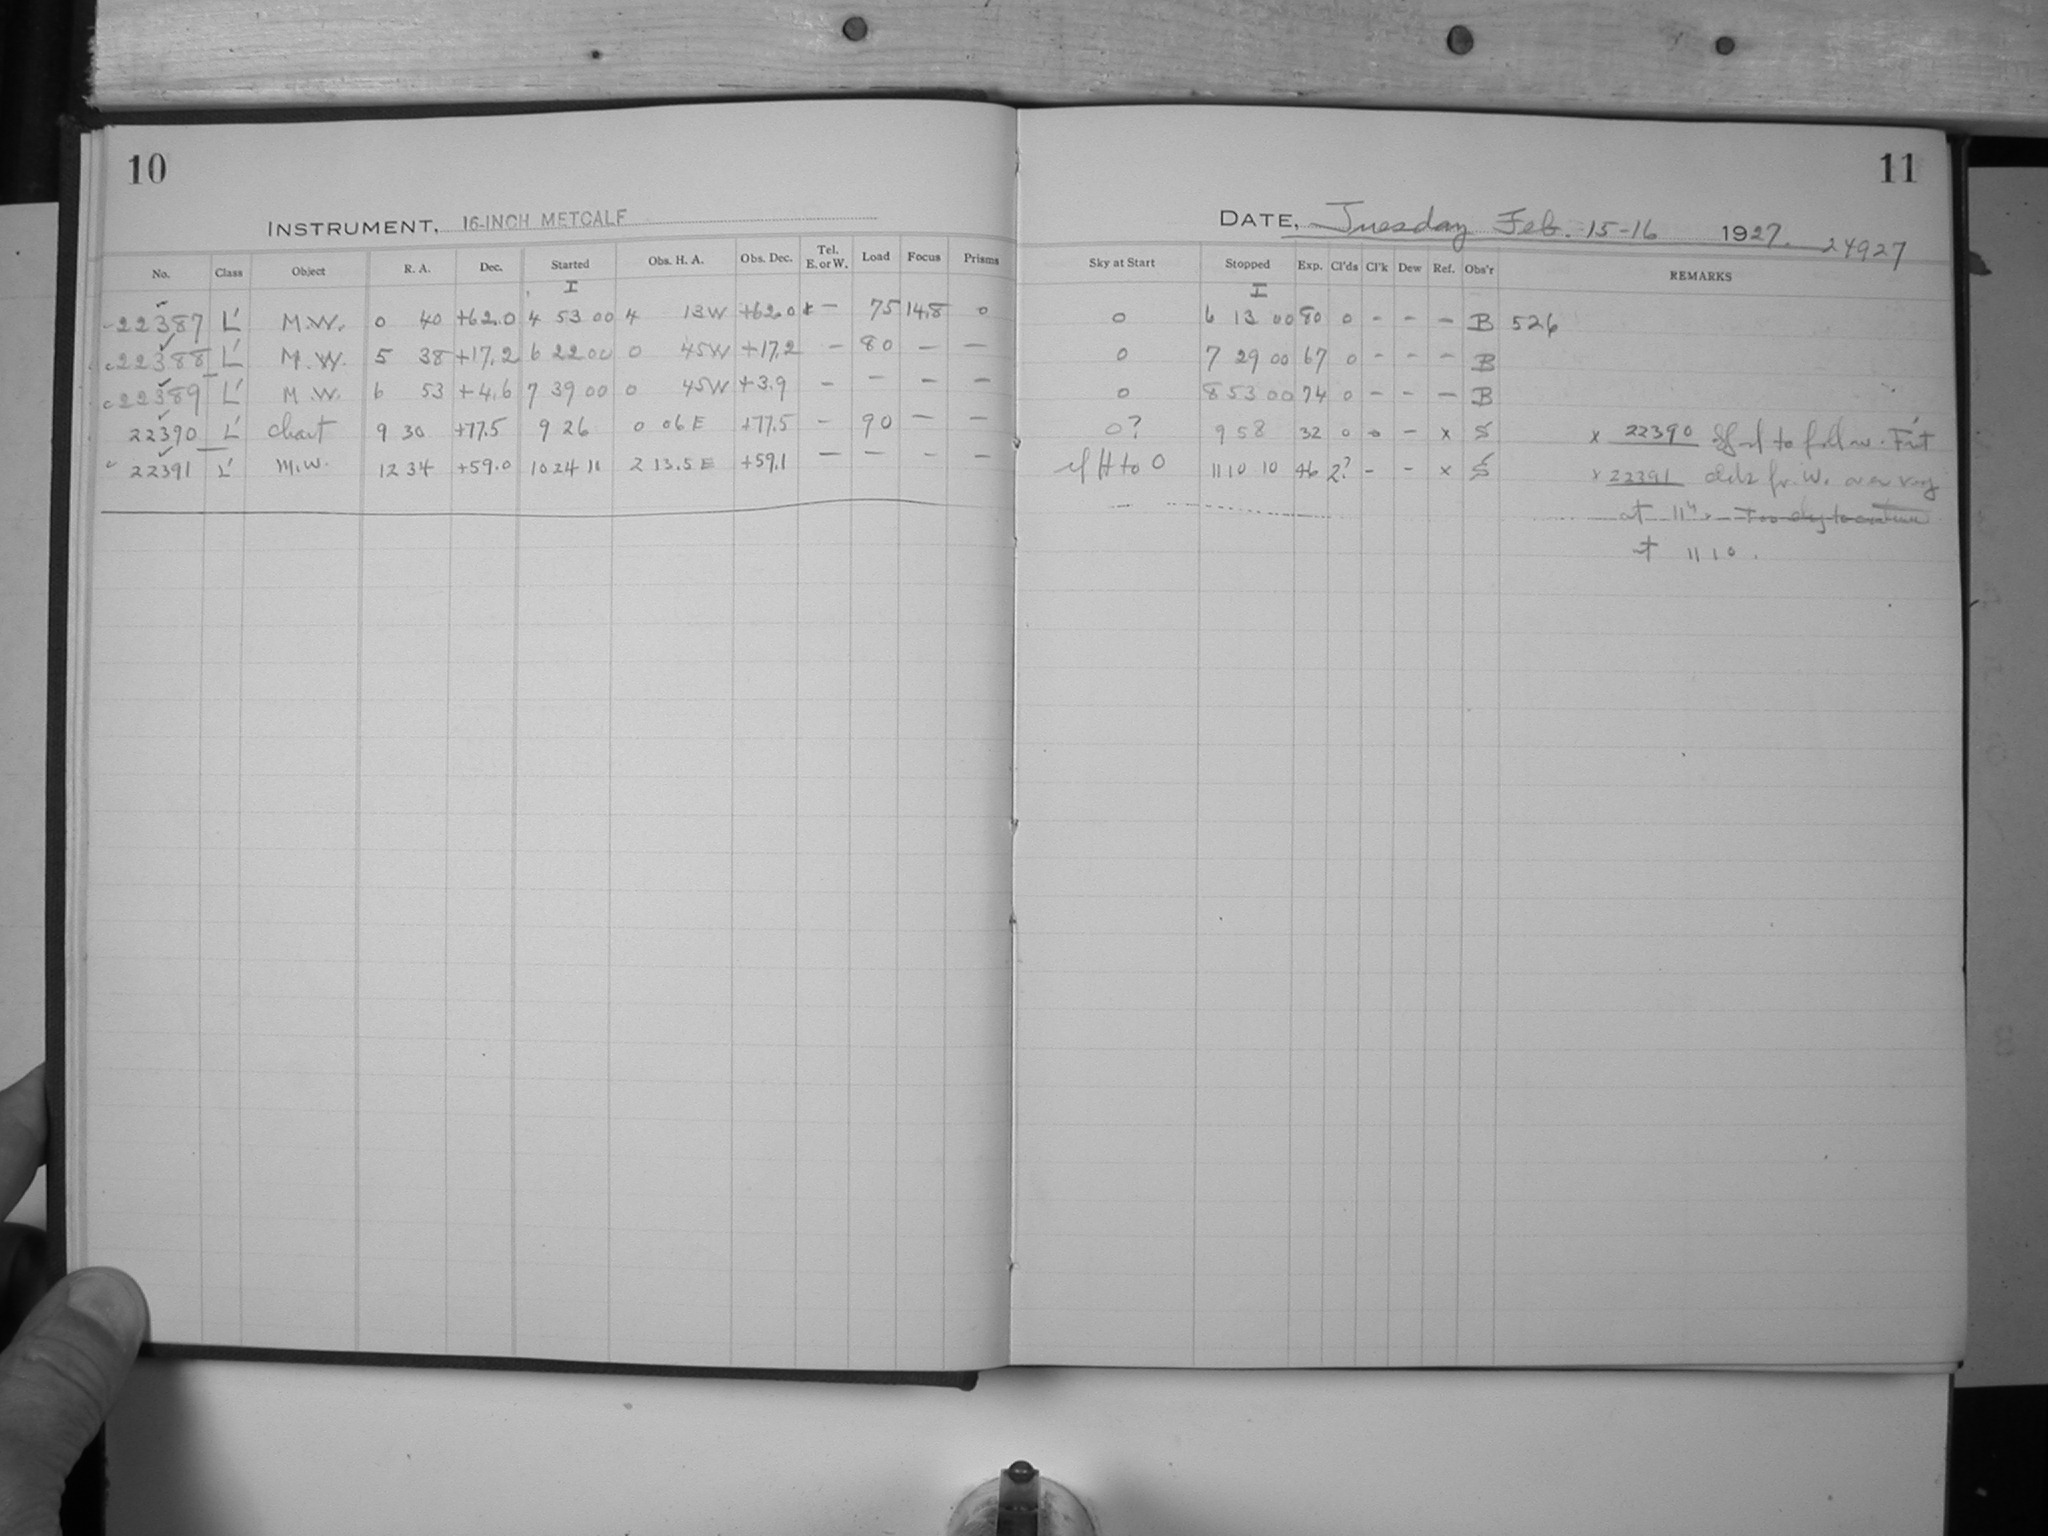 10
INSTRUMENT, 16-INCH METCALF
No. Class Object R. A. Dec. Started Obs. H. A. Obs. Dec. Tel. E. or W. Load Focus Prisms
I
22387 L' M.W. 0 40 +62.0 4 53 00 4 13W +62.0 — 75 14.8 0
22388 L' M.W. 5 38 +17.2 6 22 00 0 45W +17.2 — 80 — —
22389 L' M.W. 6 53 +4.6 7 39 00 0 45W +3.9 — — — —
22390 L' Chart 9 30 +77.5 9 26 0 06 E +77.5 — 90 — —
22391 L' M.W. 12 34 +59.0 10 24 11 2 13.5 E +59.1 — — — —
11
DATE, Tuesday Feb. 15-16 1927. 24927
Sky at Start Stopped Exp. Cl'ds Cl'k Dew Ref. Obs'r REMARKS
I
0 6 13 00 80 0 - - - B 526
0 7 29 00 67 0 - - - B
0 8 53 00 74 0 - - - B
0? 9 58 32 0 - x S x 22390 to follow.
H to 0 11 10 10 46 2? - - x S x 22391 W. over
at 11h. Too to continue
at 11 10.